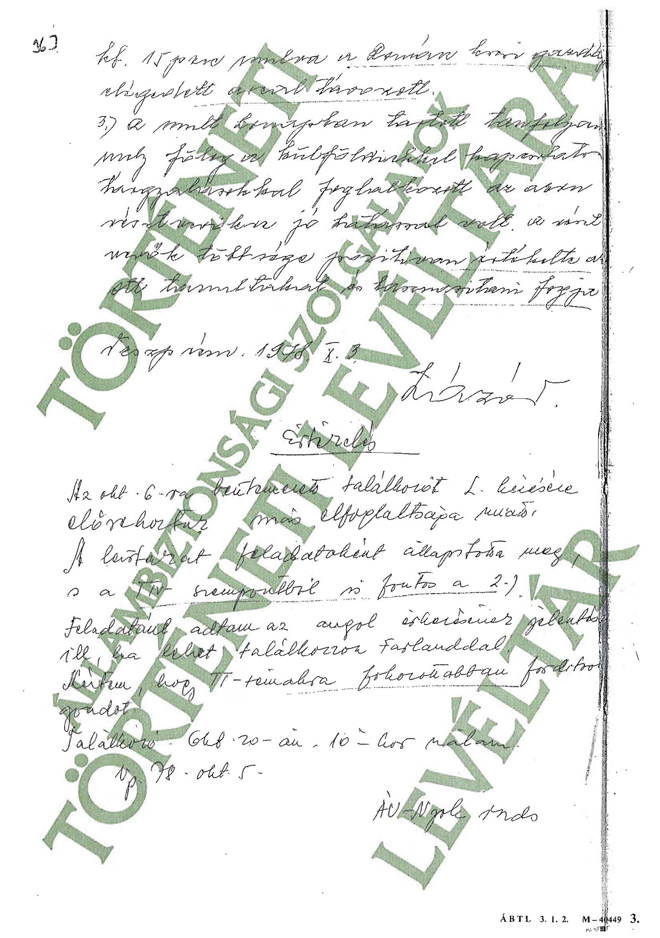 36
kb. 15 perc mulva a Román kori
elégedett arccal távozott.
3.) a mult honapban tartott tanfolyam
mely főleg a külföldiekkel kapcsolatos
tárgyalásokkal foglalkozott az azon
résztvevőkre jó hatással volt. a részt
vevők többsége pozitivan értékelte az
ott tanultakat és hasznositani fogja
Veszprém. 1978. X. 3.
Lázár.
Értékelés
Az okt. 6-ra találkozót L. kérésére
előrehoztuk más elfoglaltsága miatt.
A leirtakat feladatként állapitotta meg,
s a szempontból is fontos a 2.)
Feladatául adtam az angol érkezésének jelentését
ill. ha lehet találkozzon Farlanddal.
Kértem, hogy TT-témákra fokozottabban forditson
gondot.
Találkozó: Okt. 20-án. 10-kor nálam.
Vp. 78. okt. 5.
ÁLLAMBIZTONSÁGI SZOLGÁLATOK
TÖRTÉNETI LEVÉLTÁRA
TÖRTÉNETI
LEVÉLTÁR
ÁBTL 3. 1. 2. M-40449 3.